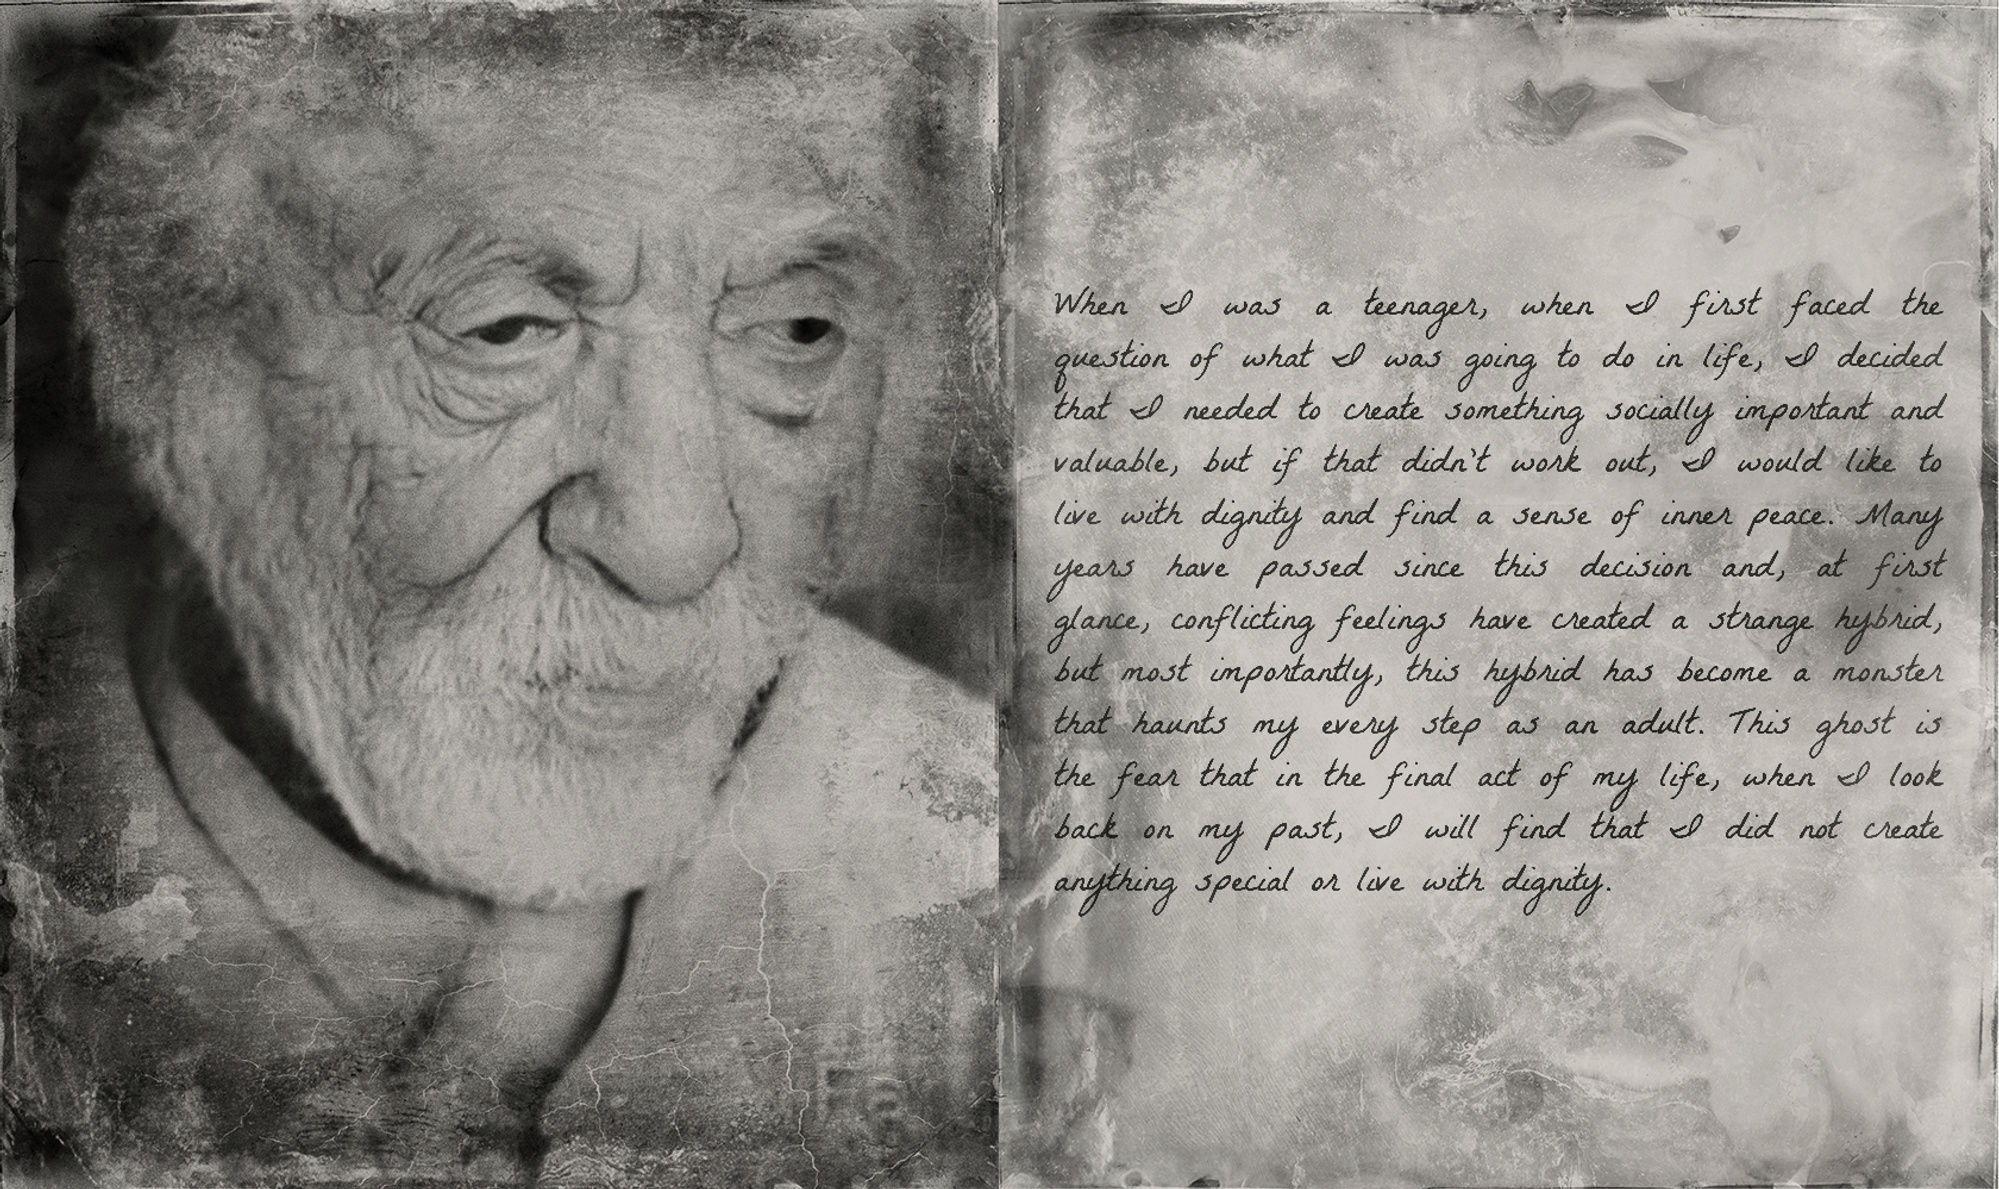 When I was a teenager, when I first faced the
question of what I was going to do in life, I decided
that I needed to create something socially important and
valuable, but if that didn't work out, I would like to
live with dignity and find a sense of inner peace. Many
years have passed since this decision and, at first
glance, conflicting feelings have created a strange hybrid,
but most importantly, this hybrid has become a monster
that haunts my every step as an adult. This ghost is
the fear that in the final act of my life, when I look
back on my past, I will find that I did not create
anything special or live with dignity.